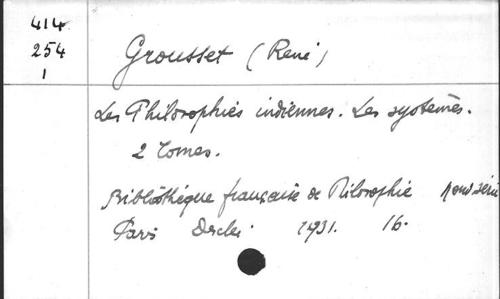 414
254
1
Grousset (René)
Les Philosophies indiennes. Les systèmes.
2 Tomes.
Bibliothèque française de Philosophie
Paris 1931. 16.